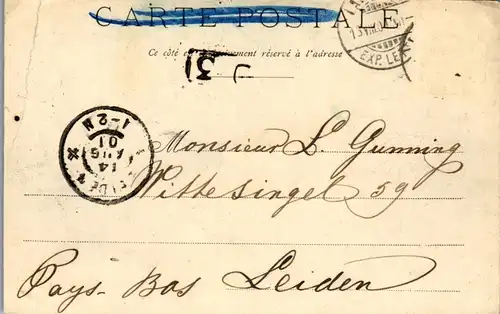 CARTE POSTALE
Ce côté est exclusivement réservé à l'adresse
EXP. LE
1-2 N
01
AUG
14
LEIDEN
Monsieur L. Gunning
Wittesingel 59
Pays-Bas Leiden